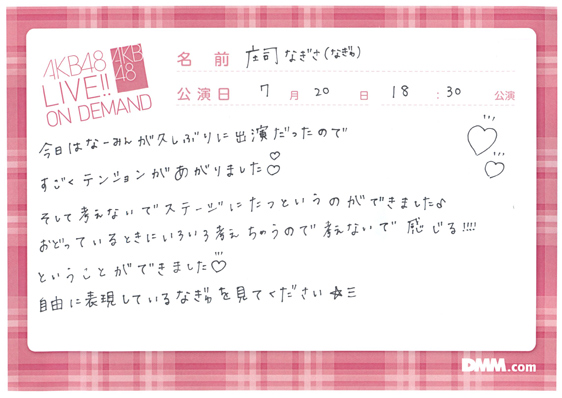 AKB48
LIVE!!
ON DEMAND
AKB
48
名前 庄司なぎさ(なぎゅ)
公演日 7月20日 18:30公演
今日はなーみんが久しぶりに出演だったので
すごくテンションがあがりました♡
そして考えないでステージにたつというのができました♪
おどっているときにいろいろ考えちゃうので考えないで感じる!!!!
ということができました♡
自由に表現しているなぎゅを見てください☆彡
DMM.com